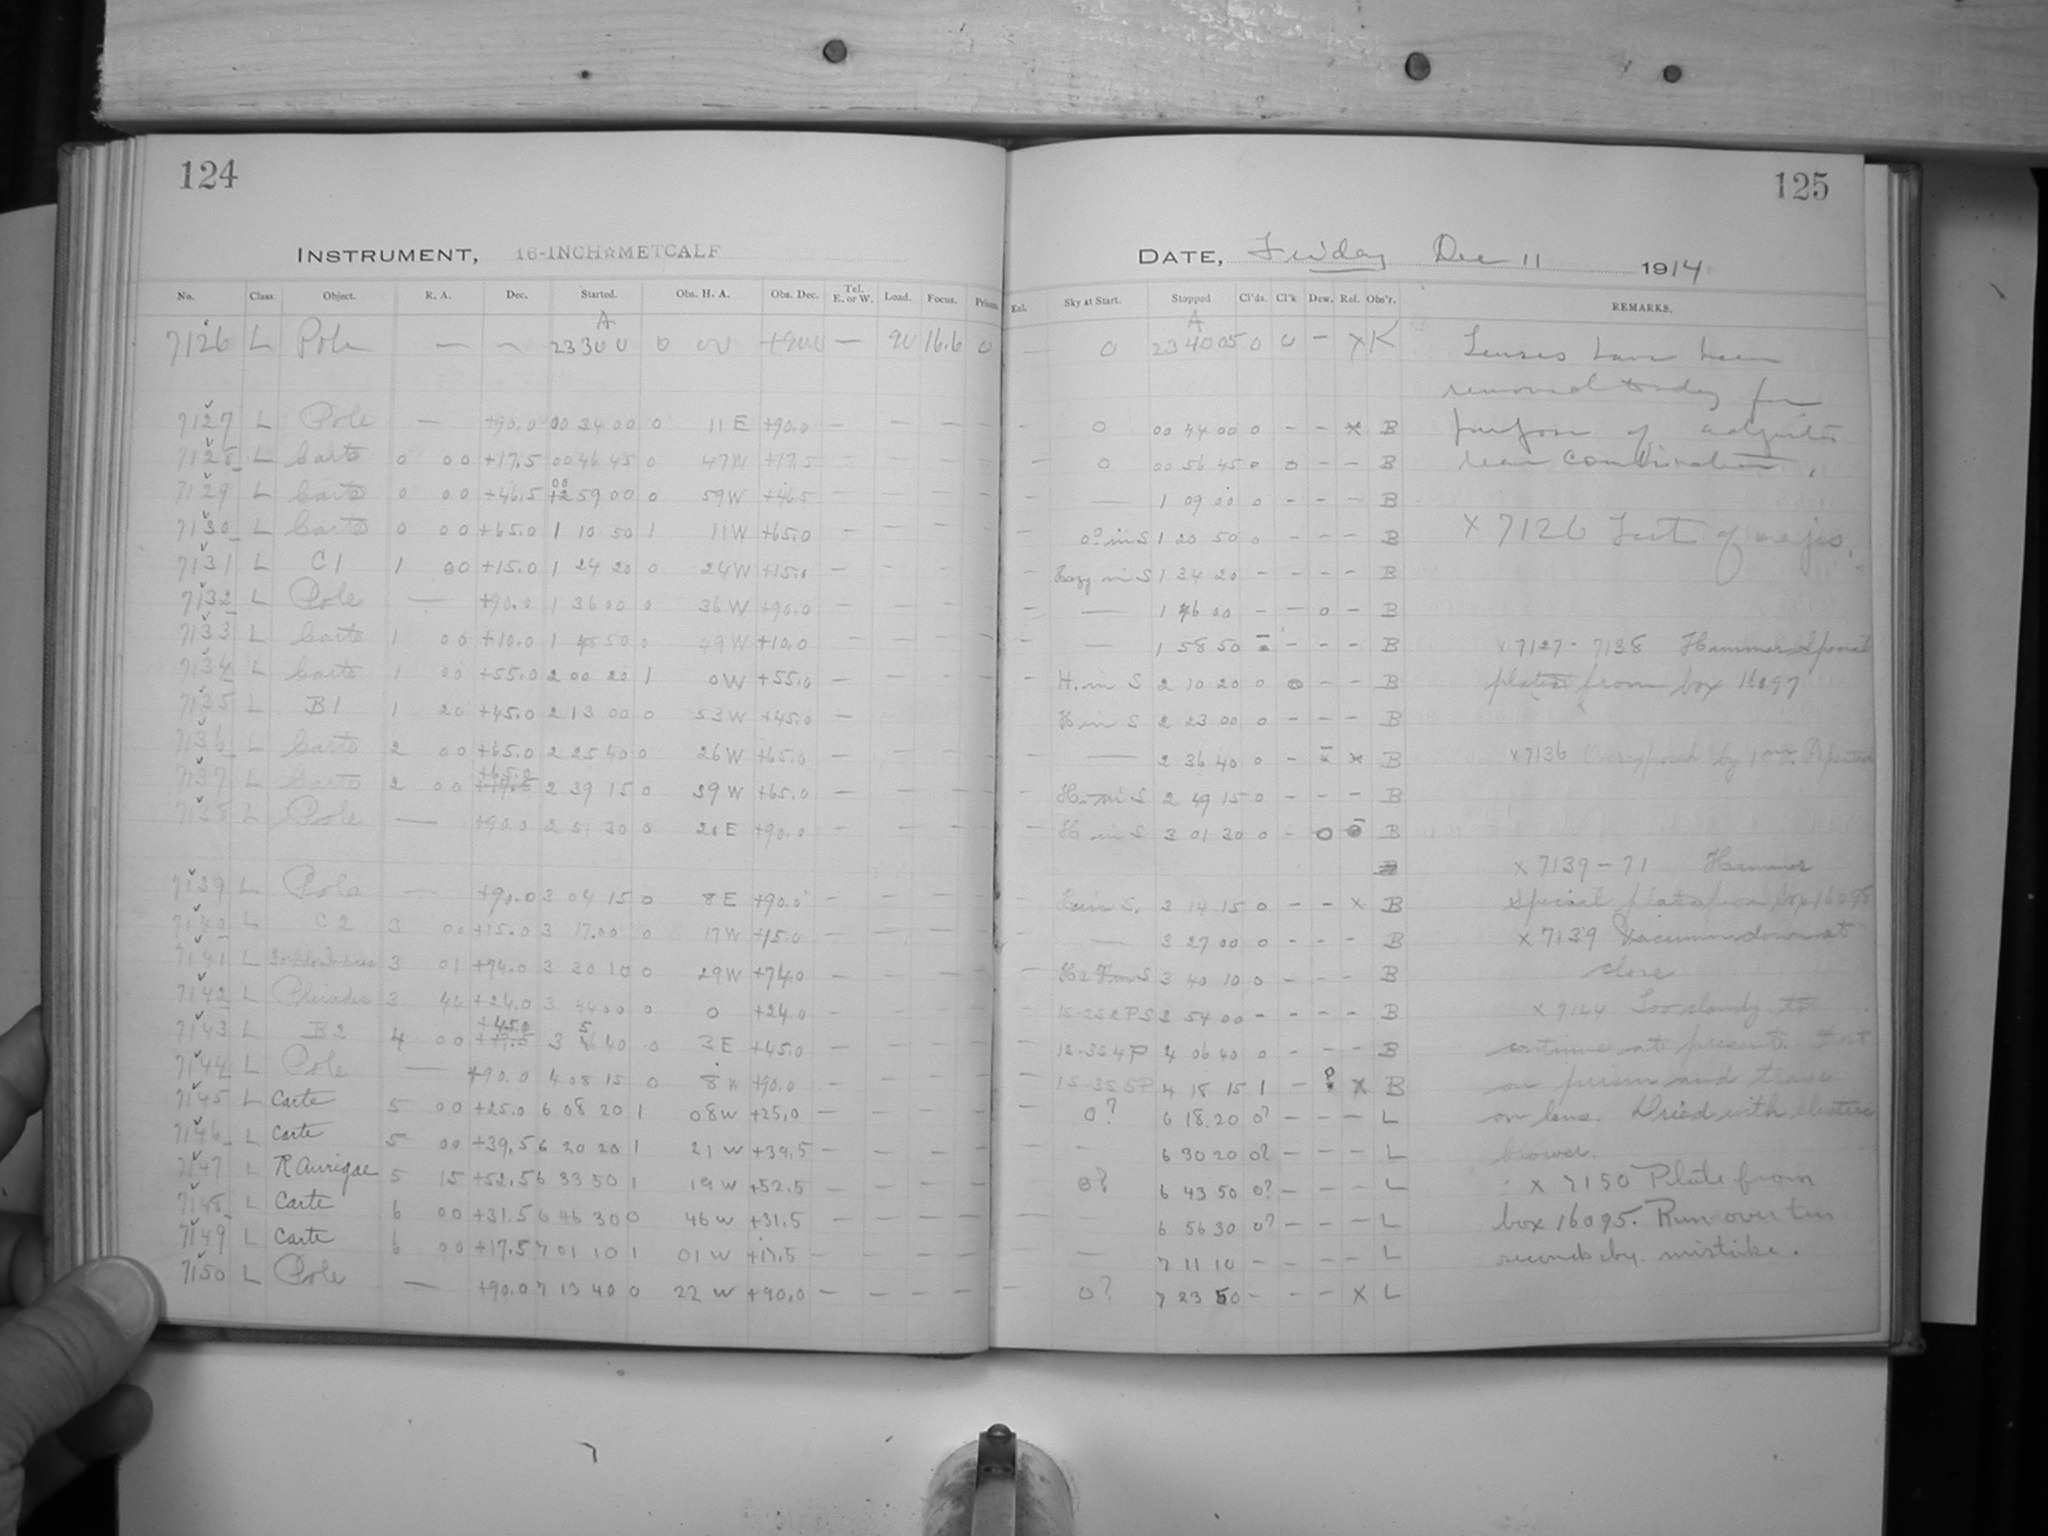 124
INSTRUMENT, 16-INCH☆METCALF
No. Class. Object. R. A. Dec. Started. Obs. H. A. Obs. Dec. Tel. E. or W. Load. Focus. Prism.
A
7126 L Pole — 23 30 0 0 — 16.6 0
7127 L Pole — +90.0 00 34 00 0 11 E +90.0 — — — —
7128 L Carte 0 00 +17.5 00 46 45 0 47 W +17.5 — — — —
7129 L Carte 0 00 +46.5 00 59 00 0 59 W +46.5 — — — —
7130 L Carte 0 00 +65.0 1 10 50 1 11 W +65.0 — — — —
7131 L C1 1 00 +15.0 1 24 20 0 24 W +15.0 — — — —
7132 L Pole — +90.0 1 36 00 0 36 W +90.0 — — — —
7133 L Carte 1 00 +10.0 1 50 0 49 W +10.0 — — — —
7134 L Carte 1 00 +55.0 2 00 20 1 0 W +55.0 — — — —
7135 L B1 1 20 +45.0 2 13 00 0 53 W +45.0 —
7136 L Carte 2 00 +65.0 2 25 40 0 26 W +65.0 — — — —
7137 L Carte 2 00 +65.0 2 39 15 0 39 W +65.0 — — — —
7138 L Pole — +90.0 2 51 30 0 E +90.0 — — — —
7139 L Pole — +90.0 3 04 15 0 8 E +90.0 — — — —
7140 L C2 3 00 +15.0 3 17 00 0 17 W +15.0 — — — —
7141 L 3 01 +74.0 3 30 10 0 29 W +74.0 — — — —
7142 L Pleiades 3 44 +24.0 3 44 00 0 0 +24.0 — — — —
7143 L B2 4 00 +45.0 3 56 40 0 3 E +45.0 — — — —
7144 L Pole — +90.0 4 08 15 0 8 W +90.0 — — — —
7145 L Carte 5 00 +25.0 6 08 20 1 08 W +25.0 — — — —
7146 L Carte 5 00 +39.5 6 20 20 1 21 W +39.5 — — — —
7147 L R Aurigae 5 15 +52.5 6 33 50 1 19 W +52.5 — — — —
7148 L Carte 6 00 +31.5 6 46 30 0 46 W +31.5 — — — —
7149 L Carte 6 00 +17.5 7 01 10 1 01 W +17.5 — — — —
7150 L Pole — +90.0 7 13 40 0 22 W +90.0 — — — —
125
DATE, Friday Dec 11 1914
Exl. Sky at Start. Stopped Cl'ds. Cl'k Dew. Ref. Obs'r. REMARKS.
A
0 23 40 05 0 0 — x K Lenses have been
removed today for
0 00 44 00 0 — — x B purpose of
0 00 56 45 0 0 — — B rear combination.
— 1 09 00 0 — — — B
0? in S 1 20 50 0 — — — B x 7126 Test of
Hazy in S 1 34 20 — — — — B
— 1 46 00 — — 0 — B
— 1 58 50 — — — B x 7127 - 7138 Hammer Special
H. in S 2 10 20 0 0 — — B plates from box 16097
H in S 2 23 00 0 — — — B
— 2 36 40 0 — x x B x 7136 Overexposed by 1 m. Repeated
H in S 2 49 15 0 — — — B
H in S 3 01 30 0 — 0 B
x 7139 - 71 Hammer
H in S. 3 14 15 0 — — x B Special plates from box 16098
— 3 27 00 0 — — — B x 7139 Vacuum down at
3 40 10 0 — — — B close
3 54 00 — — — — B x 7144 Too cloudy to
4 06 40 0 — — — B continue at present. Frost
4 18 15 1 — x B on prism and trace
0? 6 18 20 0? — — — L on lens. Dried with electric
— 6 30 20 0? — — — L blower.
0? 6 43 50 0? — — — L x 7150 Plate from
6 56 30 0? — — — L box 16095. Run over ten
— 7 11 10 — — — — L seconds by mistake.
0? 7 23 50 — — — x L